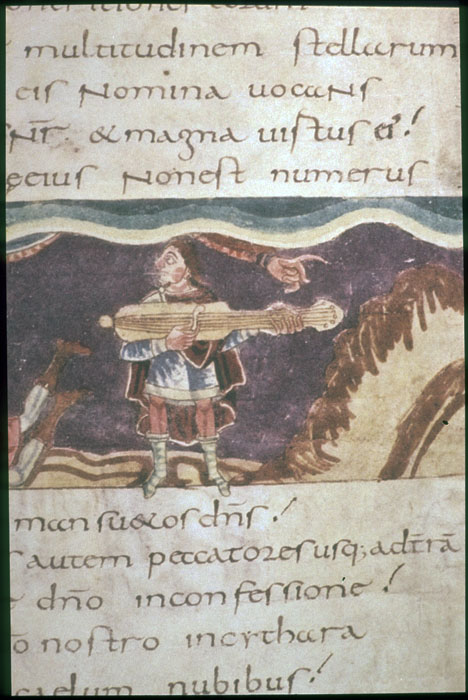 multitudinem stellarum
eis Nomina uocaNS
NR. & magna uirtus ei'.
eius Nonest numerus
mansu&os dns.
autem peccatores usq; adtrā
dno inconfessione
nostro incythara
caelum nubibus.